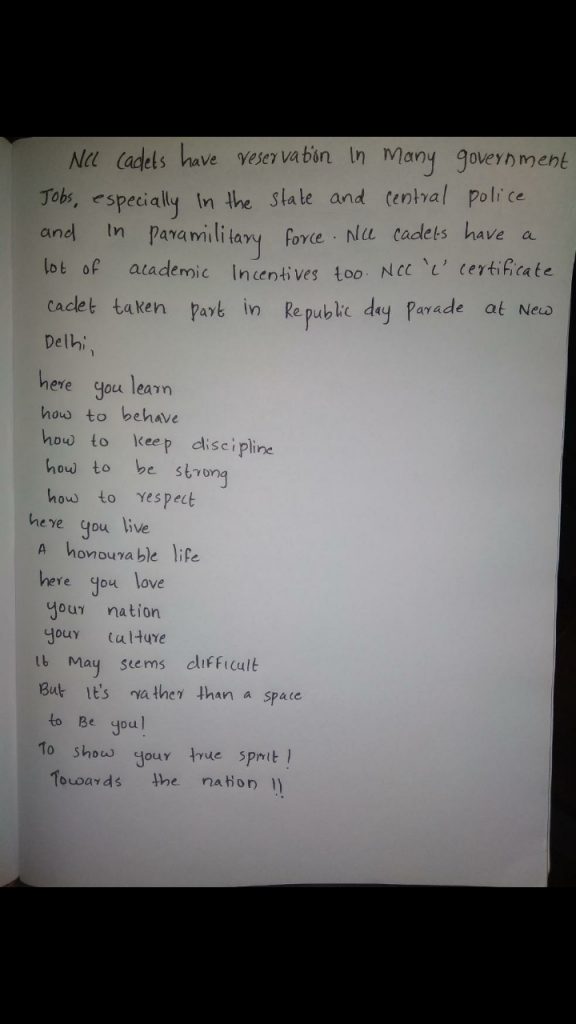 NCC Cadets have reservation In Many government
Jobs, especially In the State and Central police
and In Paramilitary force. NCC Cadets have a
lot of academic Incentives too. NCC 'C' certificate
cadet taken part in Republic day Parade at New
Delhi,
here you learn
how to behave
how to keep discipline
how to be strong
how to respect
here you live
A honourable life
here you love
your nation
your culture
It May seems difficult
But It's rather than a space
to Be you!
To show your true spirit!
Towards the nation !!